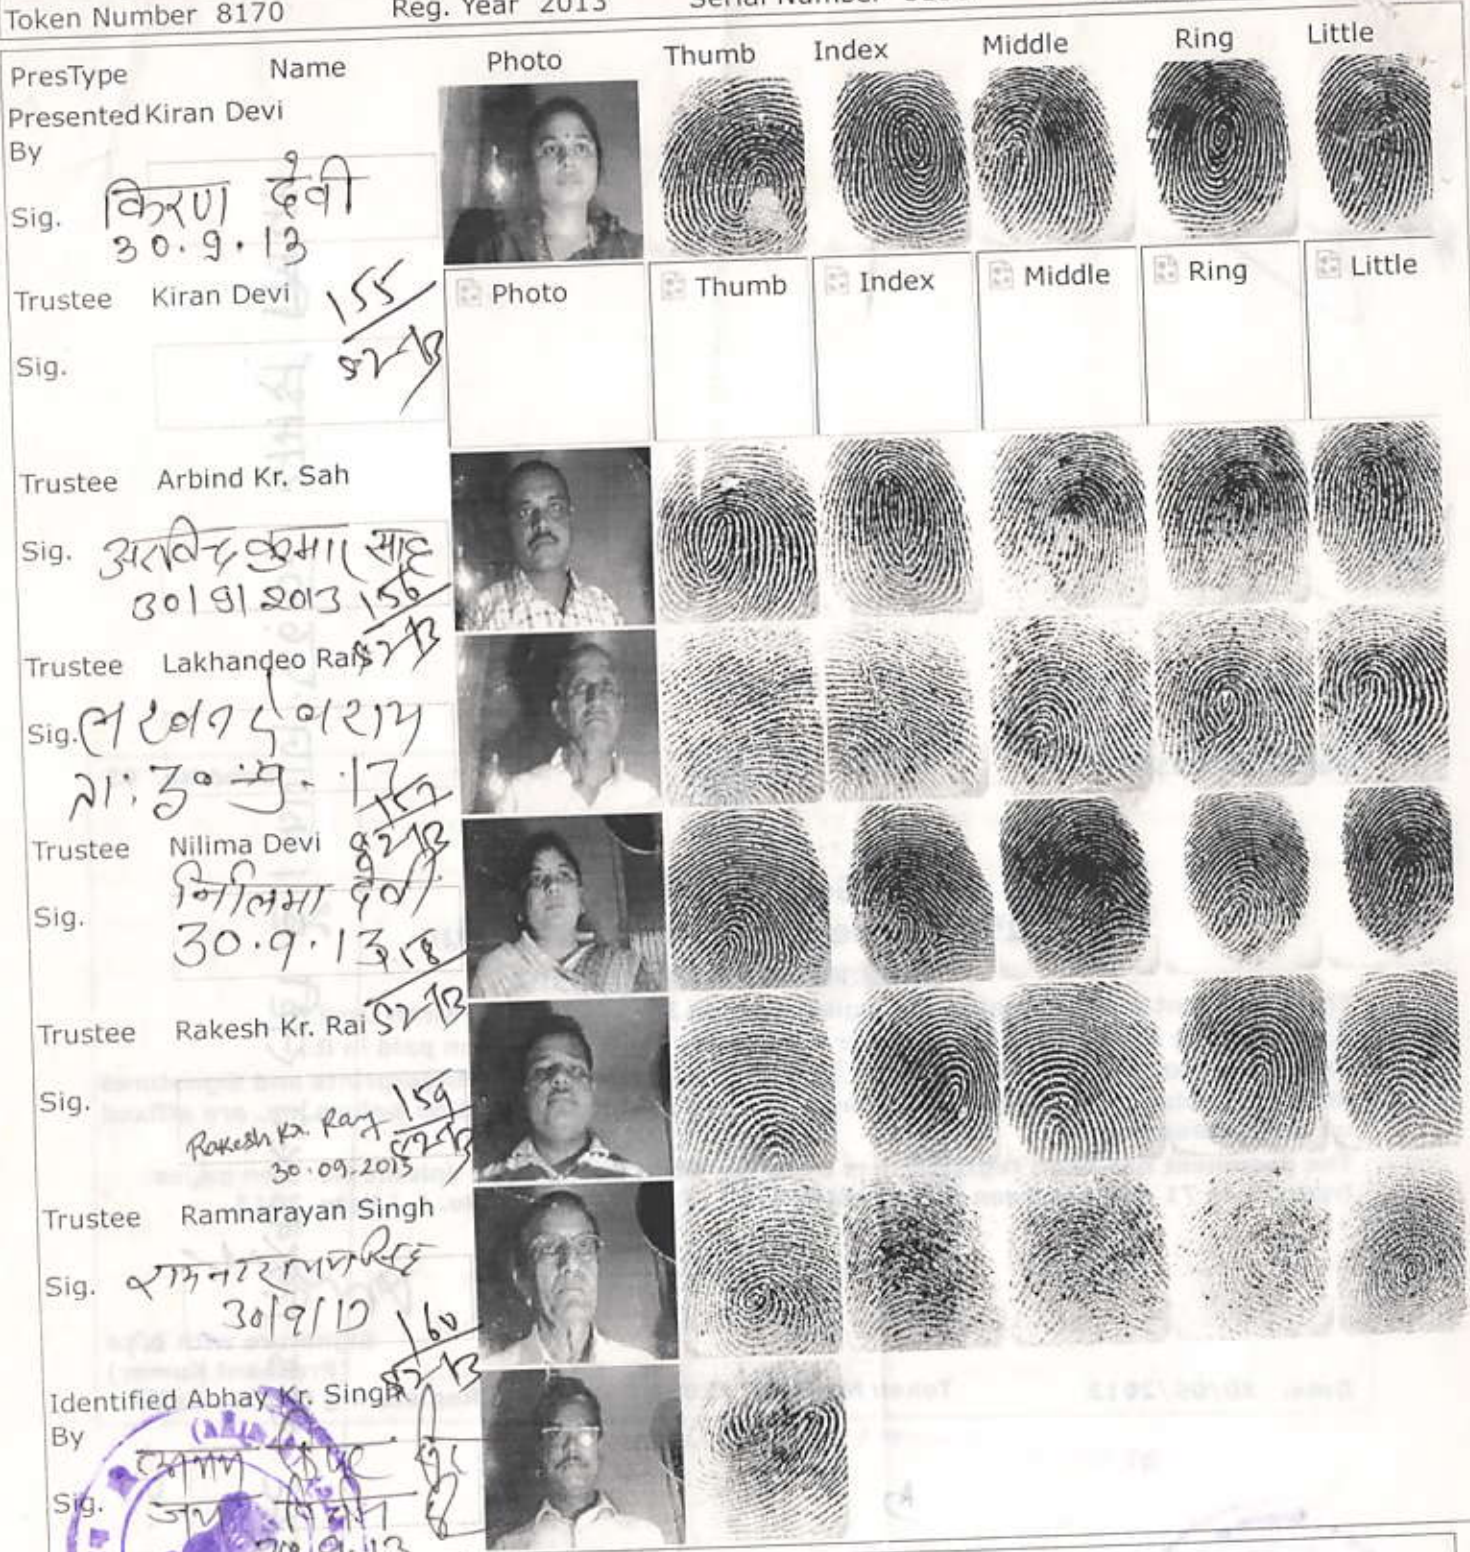 Token Number 8170 Reg. Year 2013 Serial Number
PresType Name Photo Thumb Index Middle Ring Little
Presented Kiran Devi
By
Sig. किरण देवी
30.9.13
Trustee Kiran Devi 155 Photo Thumb Index Middle Ring Little
82-13
Sig.
Trustee Arbind Kr. Sah
Sig. अरविन्द कुमार साह
30/9/2013 156
82-13
Trustee Lakhandeo Rai
Sig. लखनदेव राय
ता: 30.9.13
157
82-13
Trustee Nilima Devi
Sig. निलिमा देवी
30.9.13
158
82-13
Trustee Rakesh Kr. Rai
Sig.
Rakesh Kr. Ray 159
30.09.2013 82-13
Trustee Ramnarayan Singh
Sig. रामनारायण सिंह
30/9/13
160
82-13
Identified Abhay Kr. Singh
By
Sig.
30.9.13